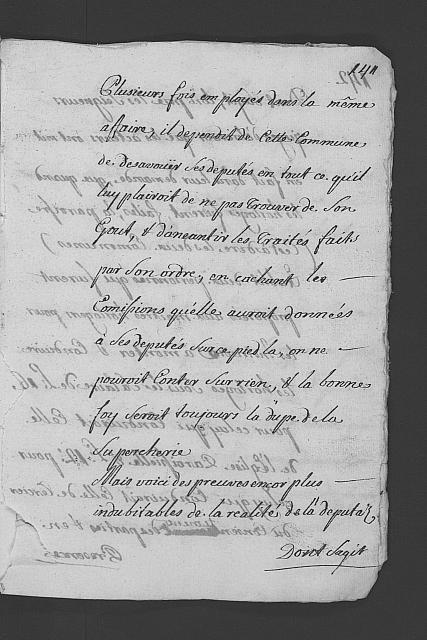 Plusieurs fois employés dans la même
affaire, il dependit de Cette Commune
de desavouër ses deputés en tout ce qu'il
luy plairoit de ne pas Trouver de Son
Gout, & d'aneantir les Traités faits
par Son ordre, en cachant les
Comissions qu'elle auroit données
à Ses deputés Sur ce pied la, on ne
pouroit Conter Sur rien, & la bonne
foy Seroit toujours la dupe de la
Supercherie
Mais voici des preuves encor plus
indubitables de la realité de la deputaõn
Dont Sagit